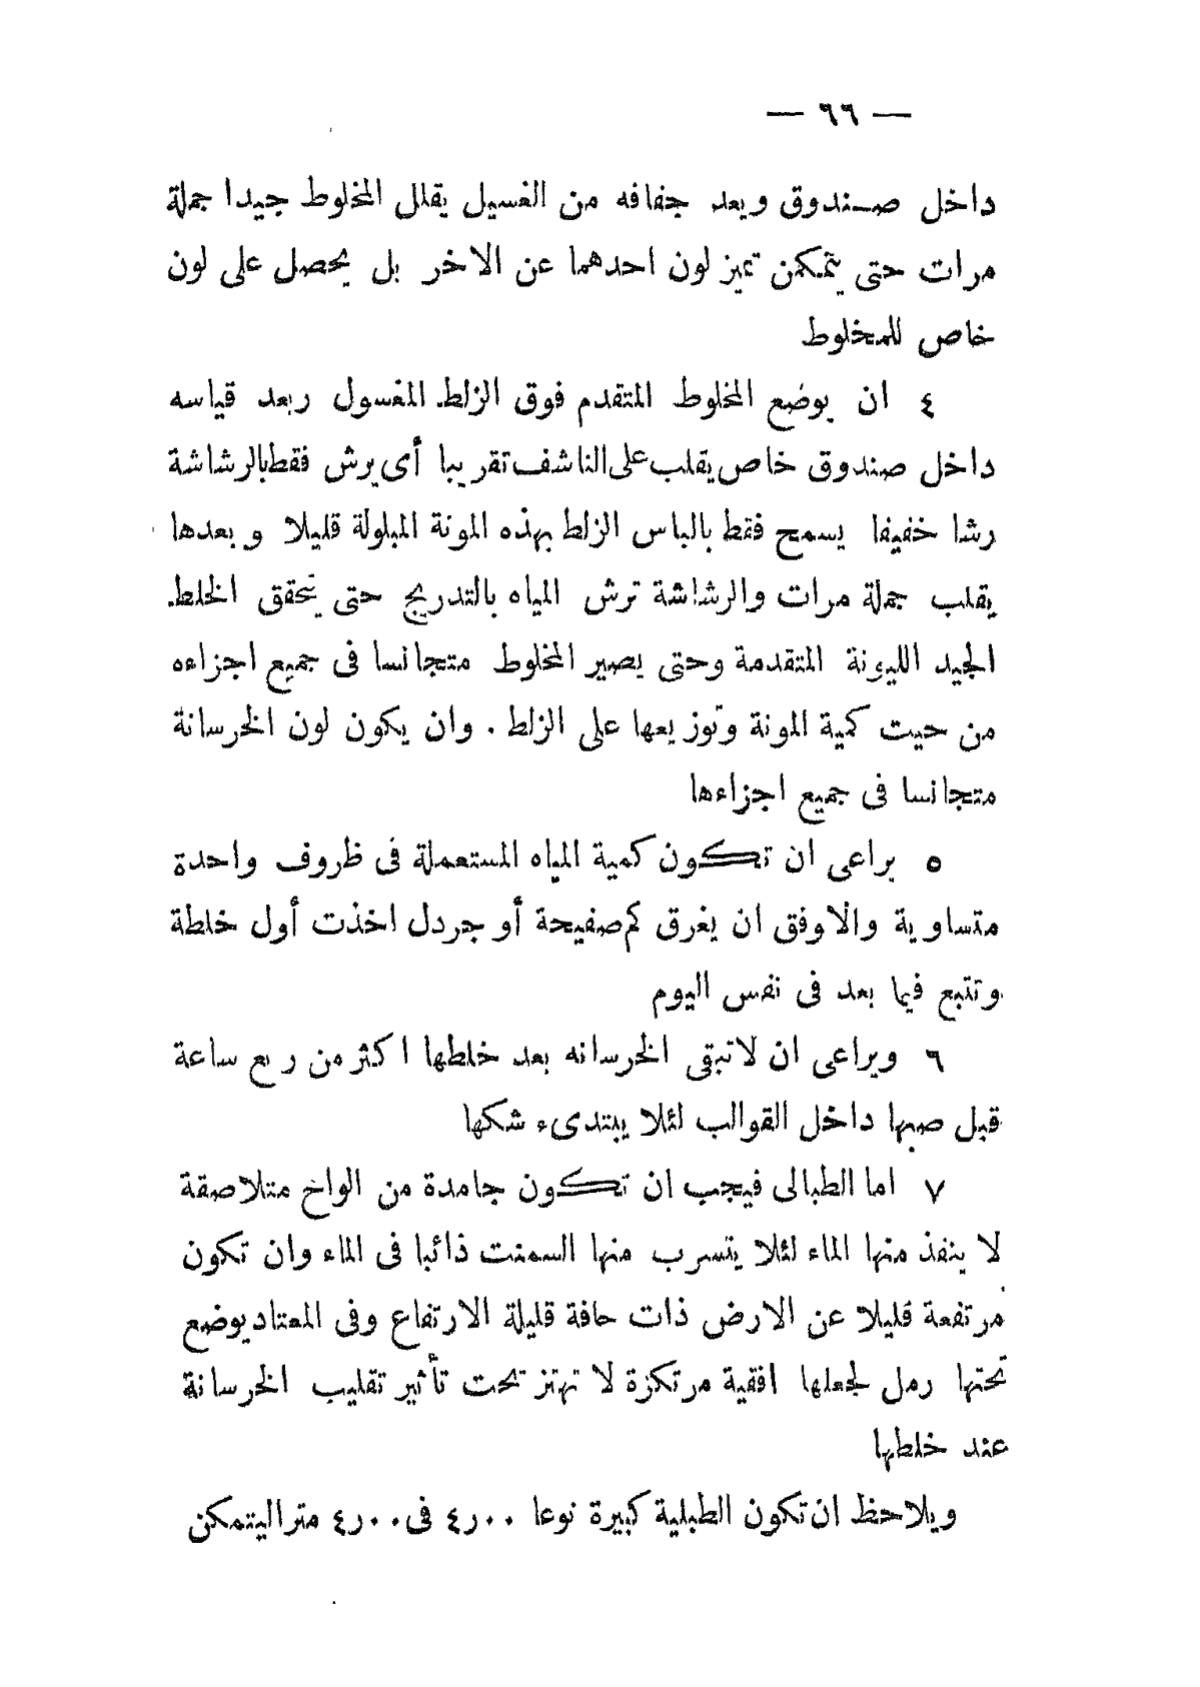 — ٦٦ —
داخل صندوق وبعد جفافه من الغسيل يقلل المخلوط جيدا جملة
مرات حتى يتمكمن تميز لون احدهما عن الاخر بل يحصل على لون
خاص للمخلوط
٤ ان يوضع المخلوط المتقدم فوق الزلط المغسول ربعد قياسه
داخل صندوق خاص يقلب على الناشف تقريبا أى يرش فقط بالرشاشة
رشا خفيفا يسمح فقط بالباس الزلط بهذه المونة المبلولة قليلا وبعدها
يقلب جملة مرات والرشاشة ترش المياه بالتدريج حتى يتحقق الخلط
الجيد الليونة المتقدمة وحتى يصير المخلوط متجانسا فى جميع اجزاءه
من حيت كمية المونة وتوزيعها على الزلط . وان يكون لون الخرسانة
متجانسا فى جميع اجزاءها
٥ براعى ان تكون كمية المياه المستعملة فى ظروف واحدة
متساوية والاوفق ان يغرق كم صفيحة أو جردل اخذت أول خلطة
وتتبع فيما بعد فى نفس اليوم
٦ ويراعى ان لاتبقى الخرسانه بعد خلطها اكثر من ربع ساعة
قبل صبها داخل القوالب لئلا يبتدىء شكها
٧ اما الطبالى فيجب ان تكون جامدة من الواخ متلاصقة
لا ينفذ منها الماء لئلا يتسرب منها السمنت ذائبا فى الماء وان تكون
مرتفعة قليلا عن الارض ذات حافة قليلة الارتفاع وفى المعتاد يوضع
تحتها رمل لجعلها افقية مرتكزة لا تهتز تحت تأثير تقليب الخرسانة
عند خلطها
ويلاحظ ان تكون الطبلية كبيرة نوعا ٤٫٠٠ فى ٤٫٠٠ مترا ليتمكن